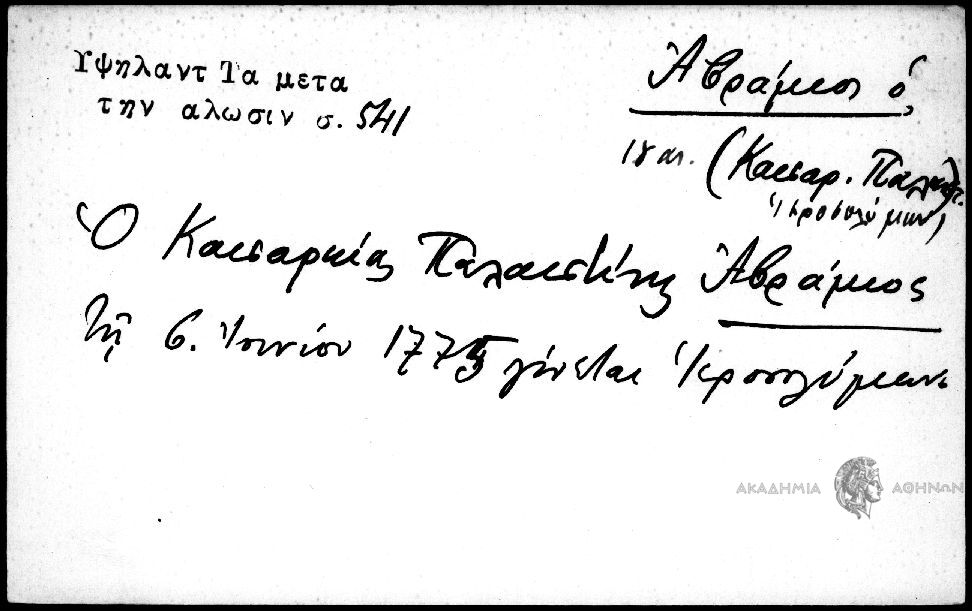 Υψηλαντ Τα μετα
την αλωσιν σ. 541
Ἀβράμιος ὁ,
18 αι. (Καισαρ. Παλαιστ.
Ἱεροσολύμων)
Ὁ Καισαρείας Παλαιστίνης Ἀβράμιος
τῇ 6. Ἰουνίου 1775 γίνεται Ἱεροσολύμων
ΑΚΑΔΗΜΙΑ ΑΘΗΝΩΝ